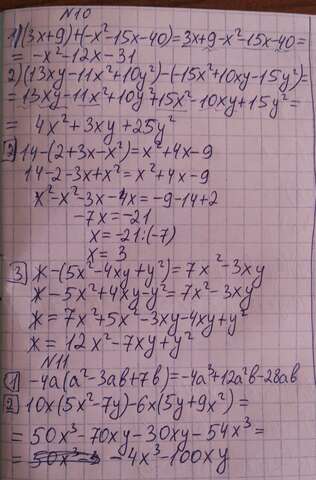 №10
1) (3x+9)+(-x²-15x-40)=3x+9-x²-15x-40=
= -x²-12x-31
2) (13xy-11x²+10y²)-(-15x²+10xy-15y²)=
=13xy-11x²+10y²+15x²-10xy+15y²=
= 4x²+3xy+25y²
2 14-(2+3x-x²)=x²+4x-9
14-2-3x+x²=x²+4x-9
x²-x²-3x-4x=-9-14+2
-7x=-21
x=-21:(-7)
x=3
3 Ж-(5x²-4xy+y²)=7x²-3xy
Ж-5x²+4xy-y²=7x²-3xy
Ж=7x²+5x²-3xy-4xy+y²
Ж=12x²-7xy+y²
№11
1 -4a(a²-3ab+7b)=-4a³+12a²b-28ab
2 10x(5x²-7y)-6x(5y+9x²)=
=50x³-70xy-30xy-54x³=
= -4x³-100xy